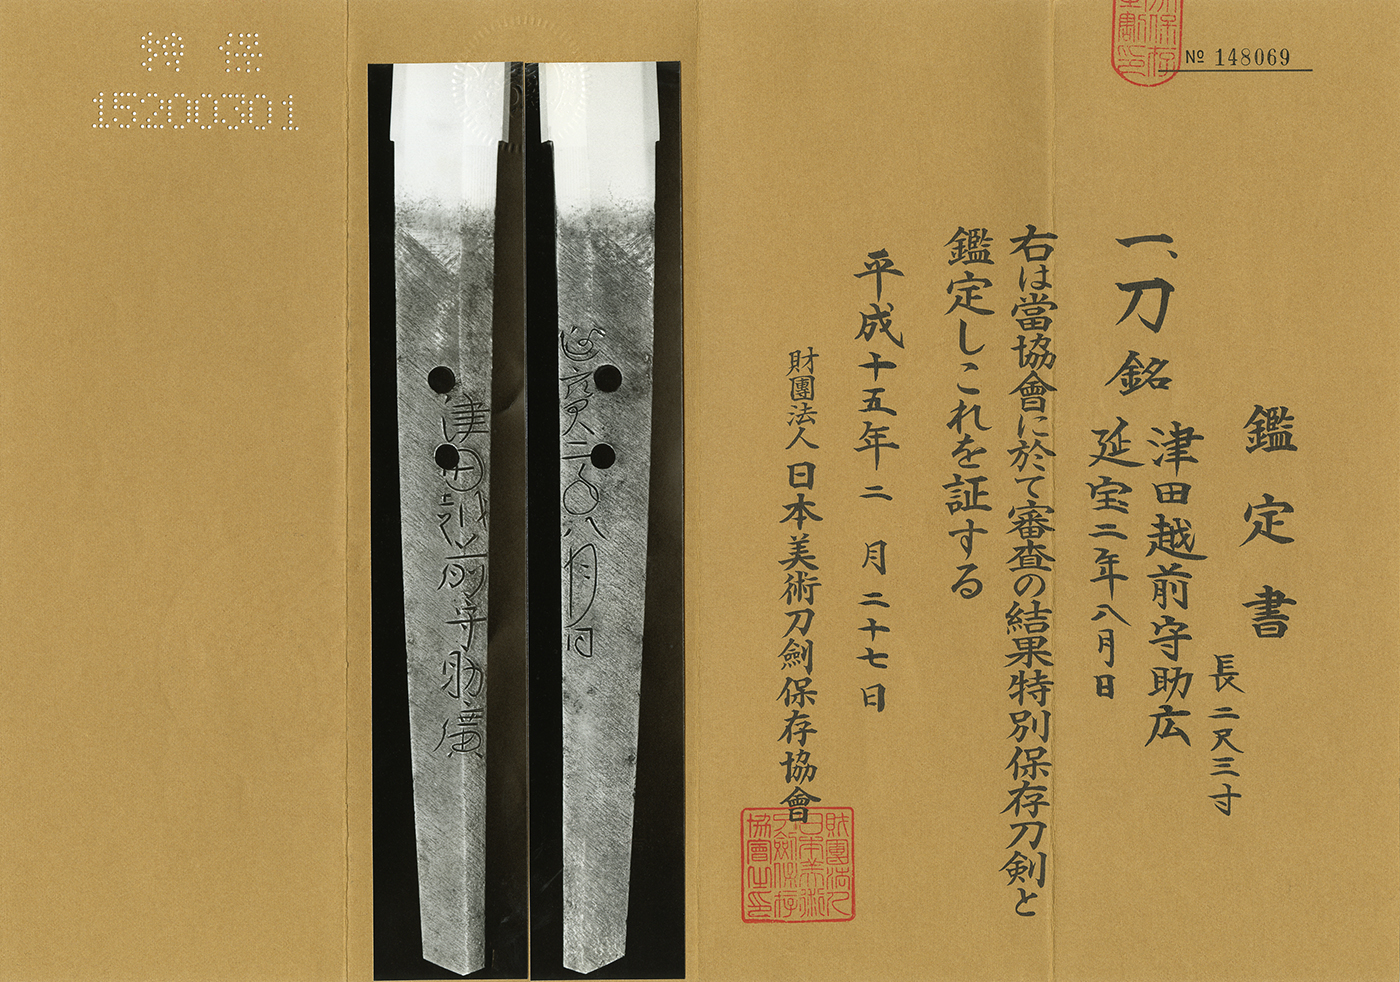 特保
15200301
№ 148069
鑑定書
長 二尺三寸
一、刀 銘 津田越前守助広
延宝二年八月日
右は當協會に於て審査の結果特別保存刀剣と
鑑定しこれを証する
平成十五年二月二十七日
財團法人 日本美術刀劍保存協會
財團法人
日本美術
刀劍保存
協會之印
延寳二年八月日
津田越前守助廣